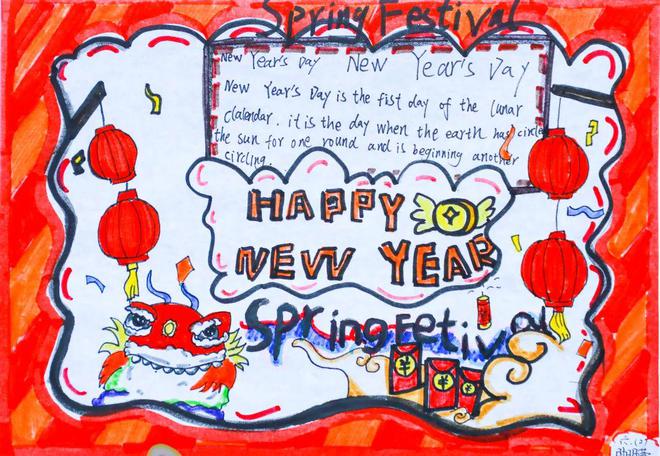 Spring Festival
New Year's Day New Year's Day
New Year's Day is the fist day of the lunar
clalendar. it is the day when the earth has circle
the sun for one round and is beginning another
circling.
HAPPY
NEW YEAR
Spring Fetival
¥ ¥ ¥
六.(2)